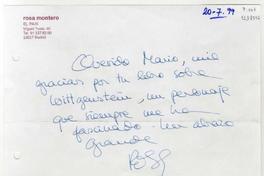 rosa montero
EL PAIS
Miguel Yuste, 40
28037 Madrid
20-7-99
Querido Mario, mil
gracias por tu libro sobre
Wittgenstein, un personaje
que siempre me ha
fascinado. Un abrazo
grande